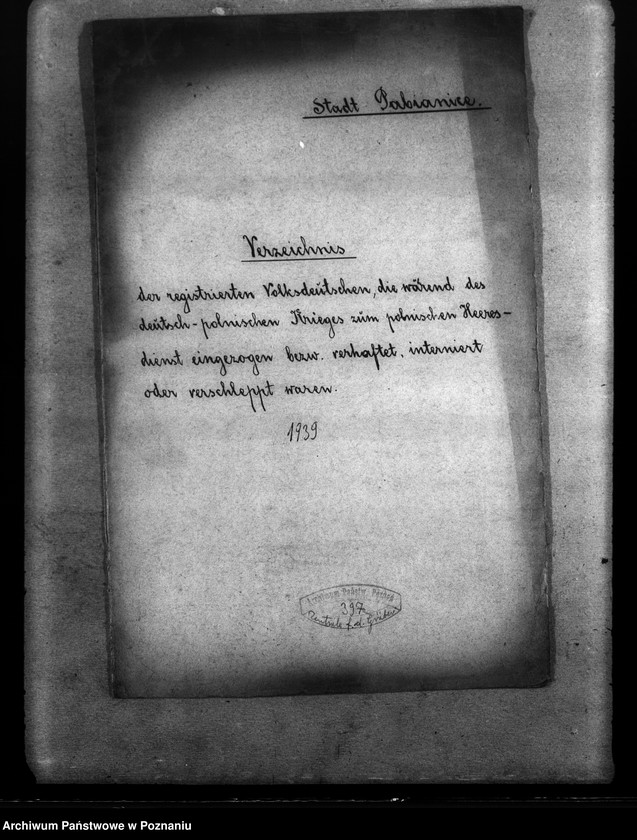 Stadt Pabianice.
Verzeichnis
der registrierten Volksdeutschen, die wärend des
deutsch-polnischen Krieges zum polnischen Heeres-
dienst eingezogen bezw. verhaftet, interniert
oder verschleppt waren.
1939
Archiwum Państw. Poznań
397
Zentrale f. d. Gräber
Archiwum Państwowe w Poznaniu